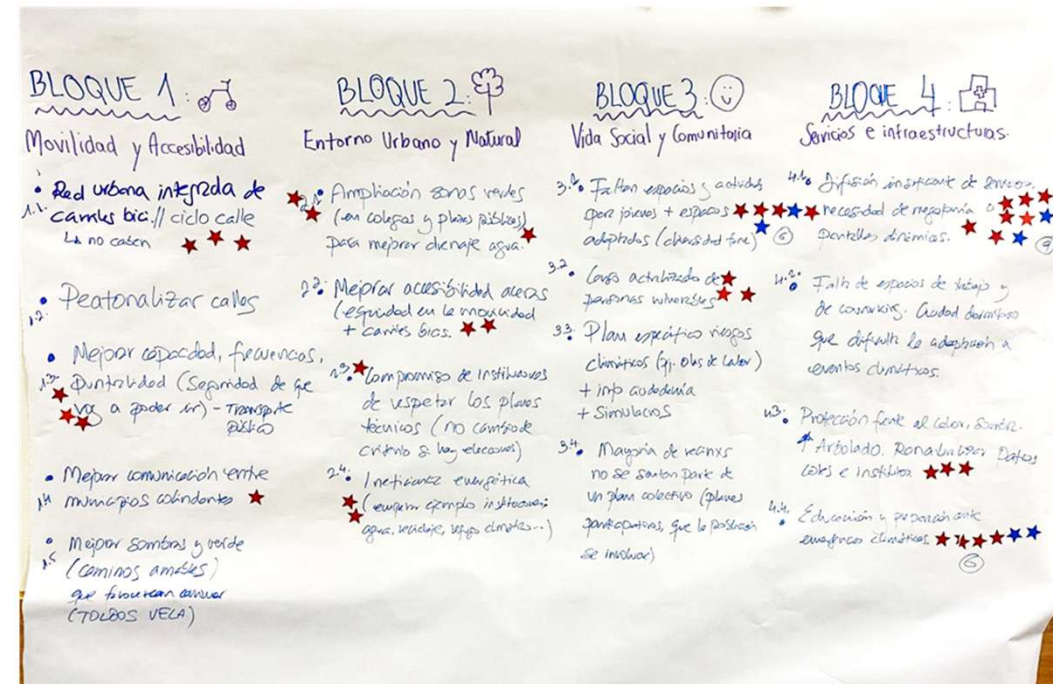 BLOQUE 1:
Movilidad y Accesibilidad
• Red urbana integrada de
1.1. carriles bici // ciclo calle
↳ no caben
• Peatonalizar calles
1.2.
• Mejorar capacidad, frecuencias,
1.3. puntualidad (Seguridad de que
voy a poder ir) - Transporte
público
• Mejorar comunicación entre
1.4 municipios colindantes
• Mejorar sombras y verde
1.5 (caminos amables)
que favorezcan caminar
(TOLDOS VELA)
BLOQUE 2:
Entorno Urbano y Natural
2.1. Ampliación zonas verdes
(en colegios y plazas públicas)
para mejorar drenaje agua.
2.2. Mejorar accesibilidad aceras
(equidad en la movilidad
+ carriles bici.
2.3. Compromiso de instituciones
de respetar los planes
técnicos (no cambio de
criterio si hay elecciones)
2.4. Ineficiencia energética
ejemplo instituciones
agua, reciclaje, climático...)
BLOQUE 3:
Vida Social y Comunitaria
3.1. Faltan espacios y actividades
para jóvenes + espacios
adaptados ( ) 6
3.2. Censo actualizado de
personas vulnerables
3.3. Plan específico riesgos
climáticos (ej. olas de calor)
+ info ciudadanía
+ Simulacros
3.4. Mayoría de vecinxs
no se sienten parte de
un plan colectivo (planes
participativos, que la población
se involucre)
BLOQUE 4:
Servicios e infraestructuras.
4.1. Difusión insuficiente de servicios,
necesidad de megafonía o
pantallas dinámicas. 9
4.2. Falta de espacios de trabajo y
de coworking. Ciudad dormitorio
que dificulta la adaptación a
eventos climáticos.
4.3. Protección frente al calor, sombra.
↑ Arbolado. Renaturalizar Patios
Coles e Institutos
4.4. Educación y preparación ante
emergencias climáticas. 6